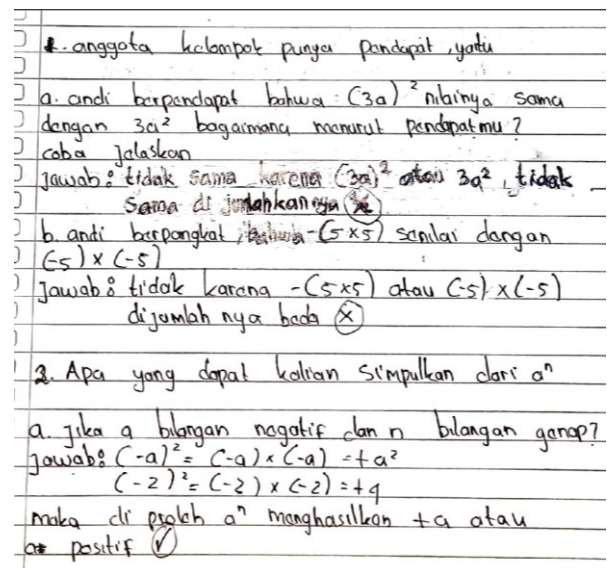 1. anggota kelompok punya pendapat, yaitu
a. andi berpendapat bahwa (3a)² nilainya sama
dengan 3a² bagaimana menurut pendapatmu?
coba jalaskan
jawab: tidak sama karena (3a)² atau 3a², tidak
sama di jumlahkannya ⓧ
b. andi berpangkat, bahwa -(5×5) senilai dengan
(-5) × (-5)
jawab: tidak karena -(5×5) atau (-5) × (-5)
dijumlah nya beda ⓧ
2. Apa yang dapat kalian simpulkan dari aⁿ
a. jika a bilangan negatif dan n bilangan genap?
jawab: (-a)² = (-a) × (-a) = +a²
(-2)² = (-2) × (-2) = +4
maka di proleh aⁿ manghasilkan +a atau
positif ✓